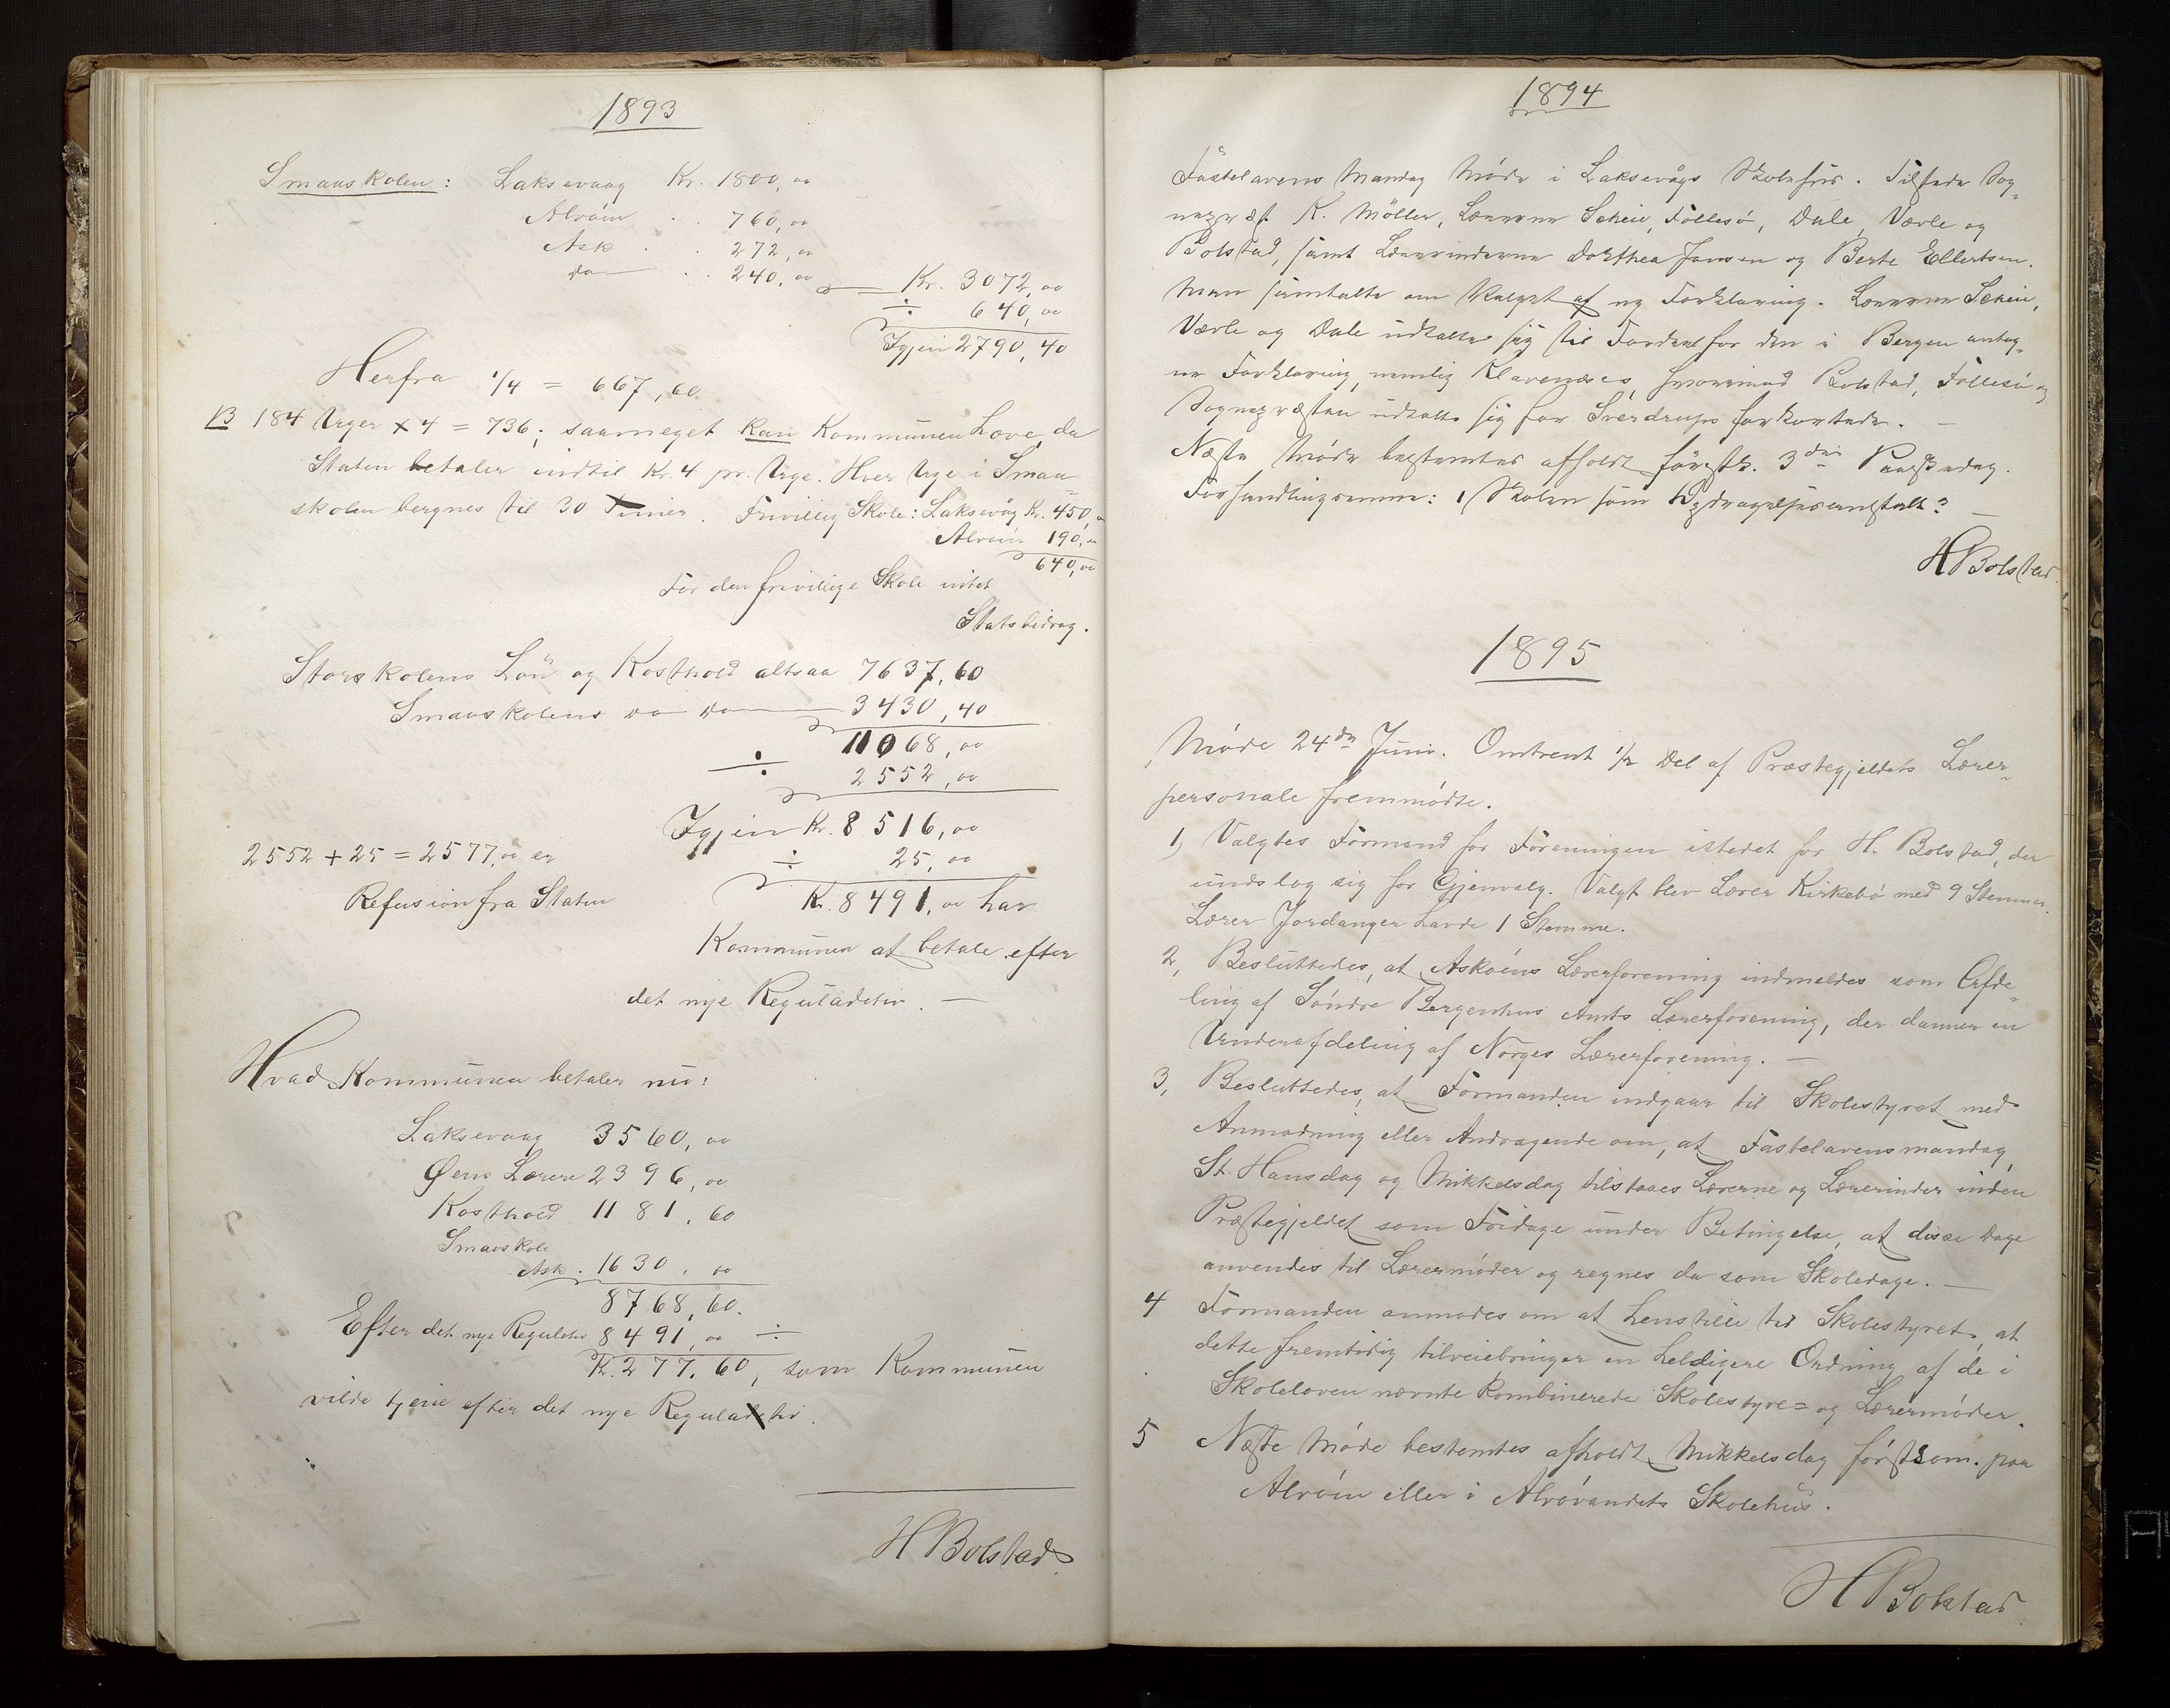 1893
Smaaskolen: Laksevaag Kr. 1800,00
Alvøen .. 760,00
Ask . .. 272,00
do .. 240,00 Kr. 3072,00
÷ 640,00
Igjen 2790,40
Herfra 1/4 = 667,60
B 184 Uger x 4 = 736; saameget kan Kommunen have, da
Staten betaler indtil Kr. 4 pr. Uge. Hver Uge i Smaa=
skolen beregnes til 30 Timer. Frivillig Skole: Laksevåg Kr. 450,
Alvøen 190,00
640,00
For den frivillige Skole intet
Statsbidrag.
Storskolens Løn og Kosthold altsaa 7637,60
Smaaskolens do do 3430,40
11068,00
÷ 2552,00
Igjen Kr. 8516,00
2552 + 25 = 2577,00 er ÷ 25,00
Refusion fra Staten Kr. 8491,00 har
Kommunen at betale efter
det nye Regulativ. —
Hvad Kommunen betaler nu:
Laksevaag 3560,00
Øens Lærere 2396,00
Kosthold 1181,60
Smaaskole
Ask . 1630,00
8768,60.
Efter det nye Regulativ 8491,00 ÷
Kr. 277,60, som Kommunen
vilde tjene efter det nye Regulativ.
H Bolstad
1894
Fastelavens Mandag Møde i Laksevågs Skolehus. Tilstede Sog-
nepræst K. Møller, Lærerne Scheie, Follesø, Dale, Værle og
Bolstad, samt Lærerinderne Dorthea Jansen og Berte Ellertsen.
Man samtalte om Valget af ny Forklaring. Lærerne Scheie,
Værle og Dale udtalte sig til Fordel for den i Bergen antag-
ne Forklaring, nemlig Klavenæses, hvorimod Bolstad, Follesø og
Sognepræsten udtalte sig for Sverdrups forkortede. —
Næste Møde bestemtes afholdt førstk. 3die Paaskedag.
Forhandlingsemne: Skolen som Opdragelsesanstalt? —
H Bolstad.
1895
Møde 24de Juni. Omtrent 1/2 Del af Præstegjeldets Lærer-
personale fremmødte.
1) Valgtes Formand for Foreningen istedet for H. Bolstad, der
undslog sig for Gjenvalg. Valgt blev Lærer Kirkebø med 9 Stemmer.
Lærer Jordanger havde 1 Stemme.
2, Besluttedes, at Askøens Lærerforening indmeldes som Afde-
ling af Søndre Bergenhus Amts Lærerforening, der danner en
Underafdeling af Norges Lærerforening. —
3, Besluttedes, at Formanden indgaar til Skolestyret med
Anmodning eller Andragende om, at Fastelavensmandag,
St. Hansdag og Mikkelsdag tilstaaes Lærerne og Lærerinder inden
Præstegjeldet som Fridage under Betingelse, at disse Dage
anvendes til Lærermøder og regnes da som Skoledage. —
4 Formanden anmodes om at henstille til Skolestyret, at
dette fremtidig tilveiebringer en heldigere Ordning af de i
Skoleloven nævnte kombinerede Skolestyre= og Lærermøder.
5 Næste Møde bestemtes afholdt Mikkelsdag førstkom. paa
Alvøen eller i Alvøvandets Skolehus.
H Bolstad